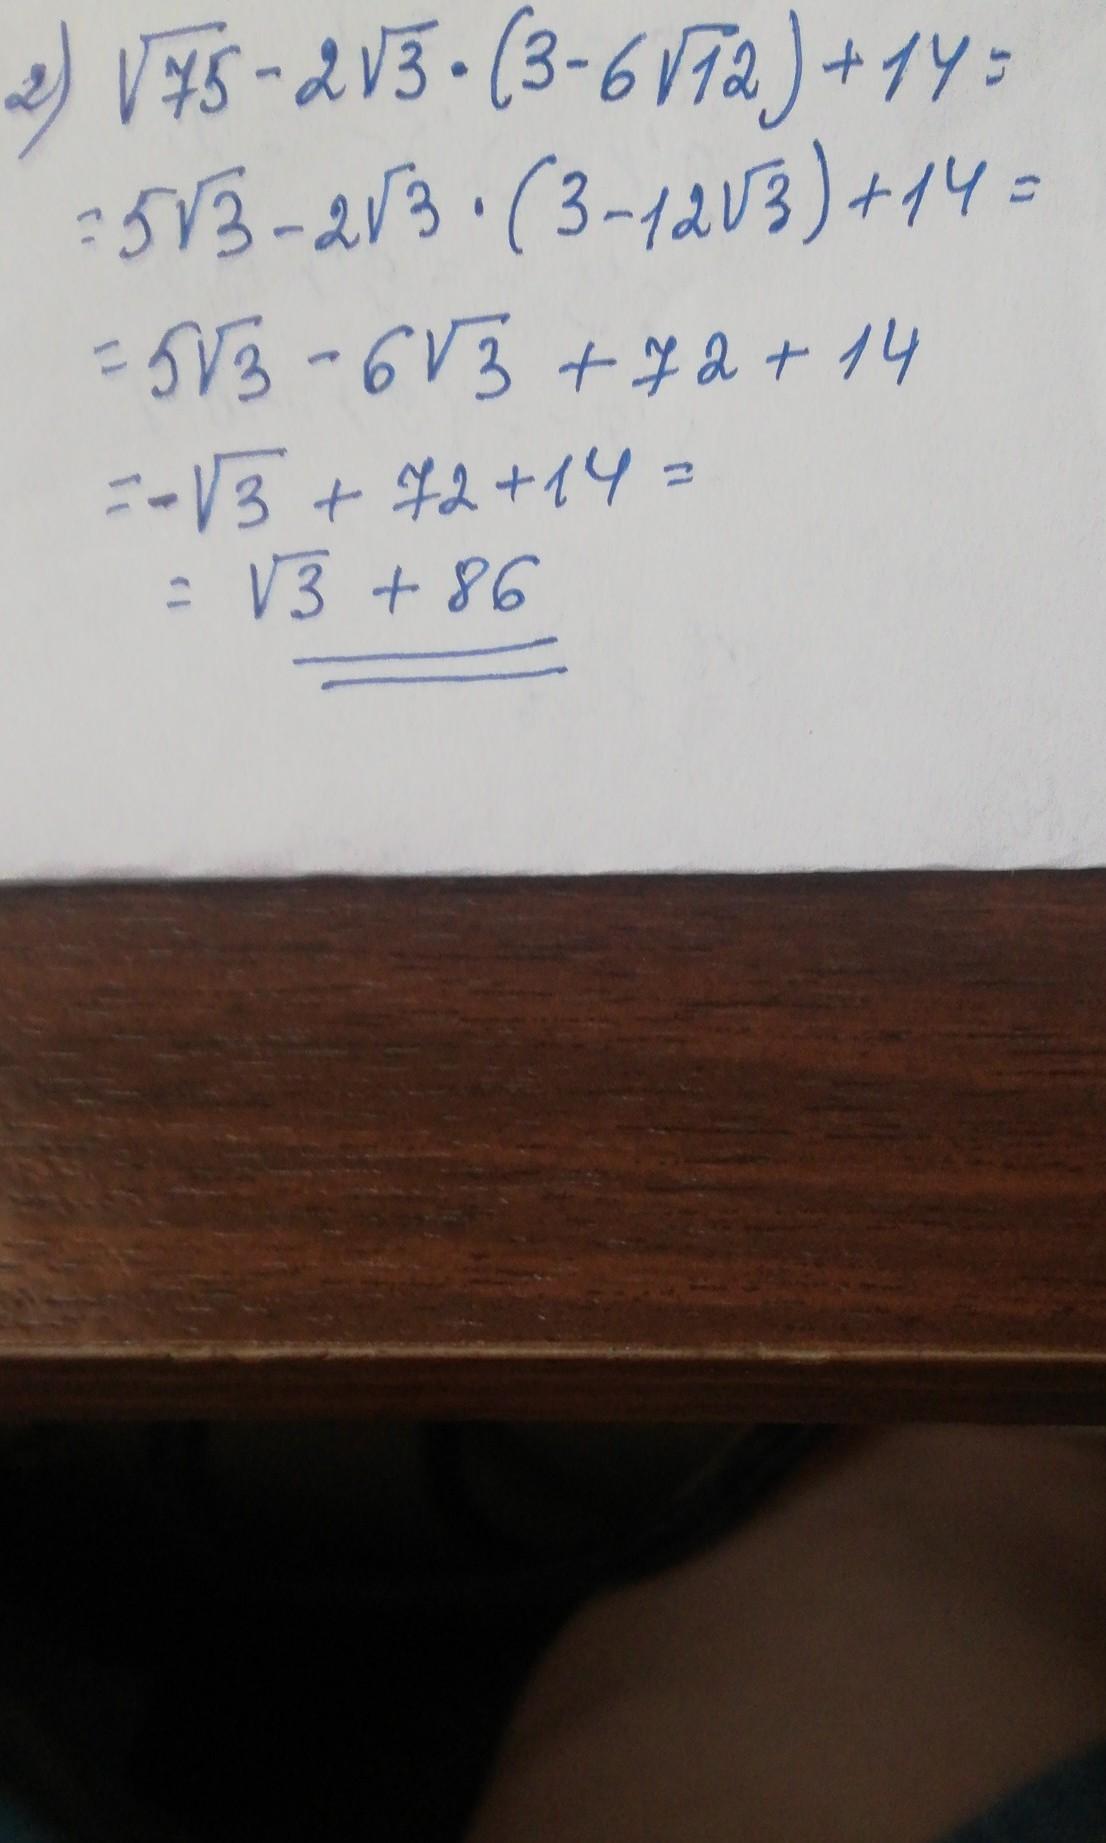 2) √75 - 2√3 · (3 - 6√12) + 14 =
= 5√3 - 2√3 · (3 - 12√3) + 14 =
= 5√3 - 6√3 + 72 + 14
= -√3 + 72 + 14 =
= √3 + 86